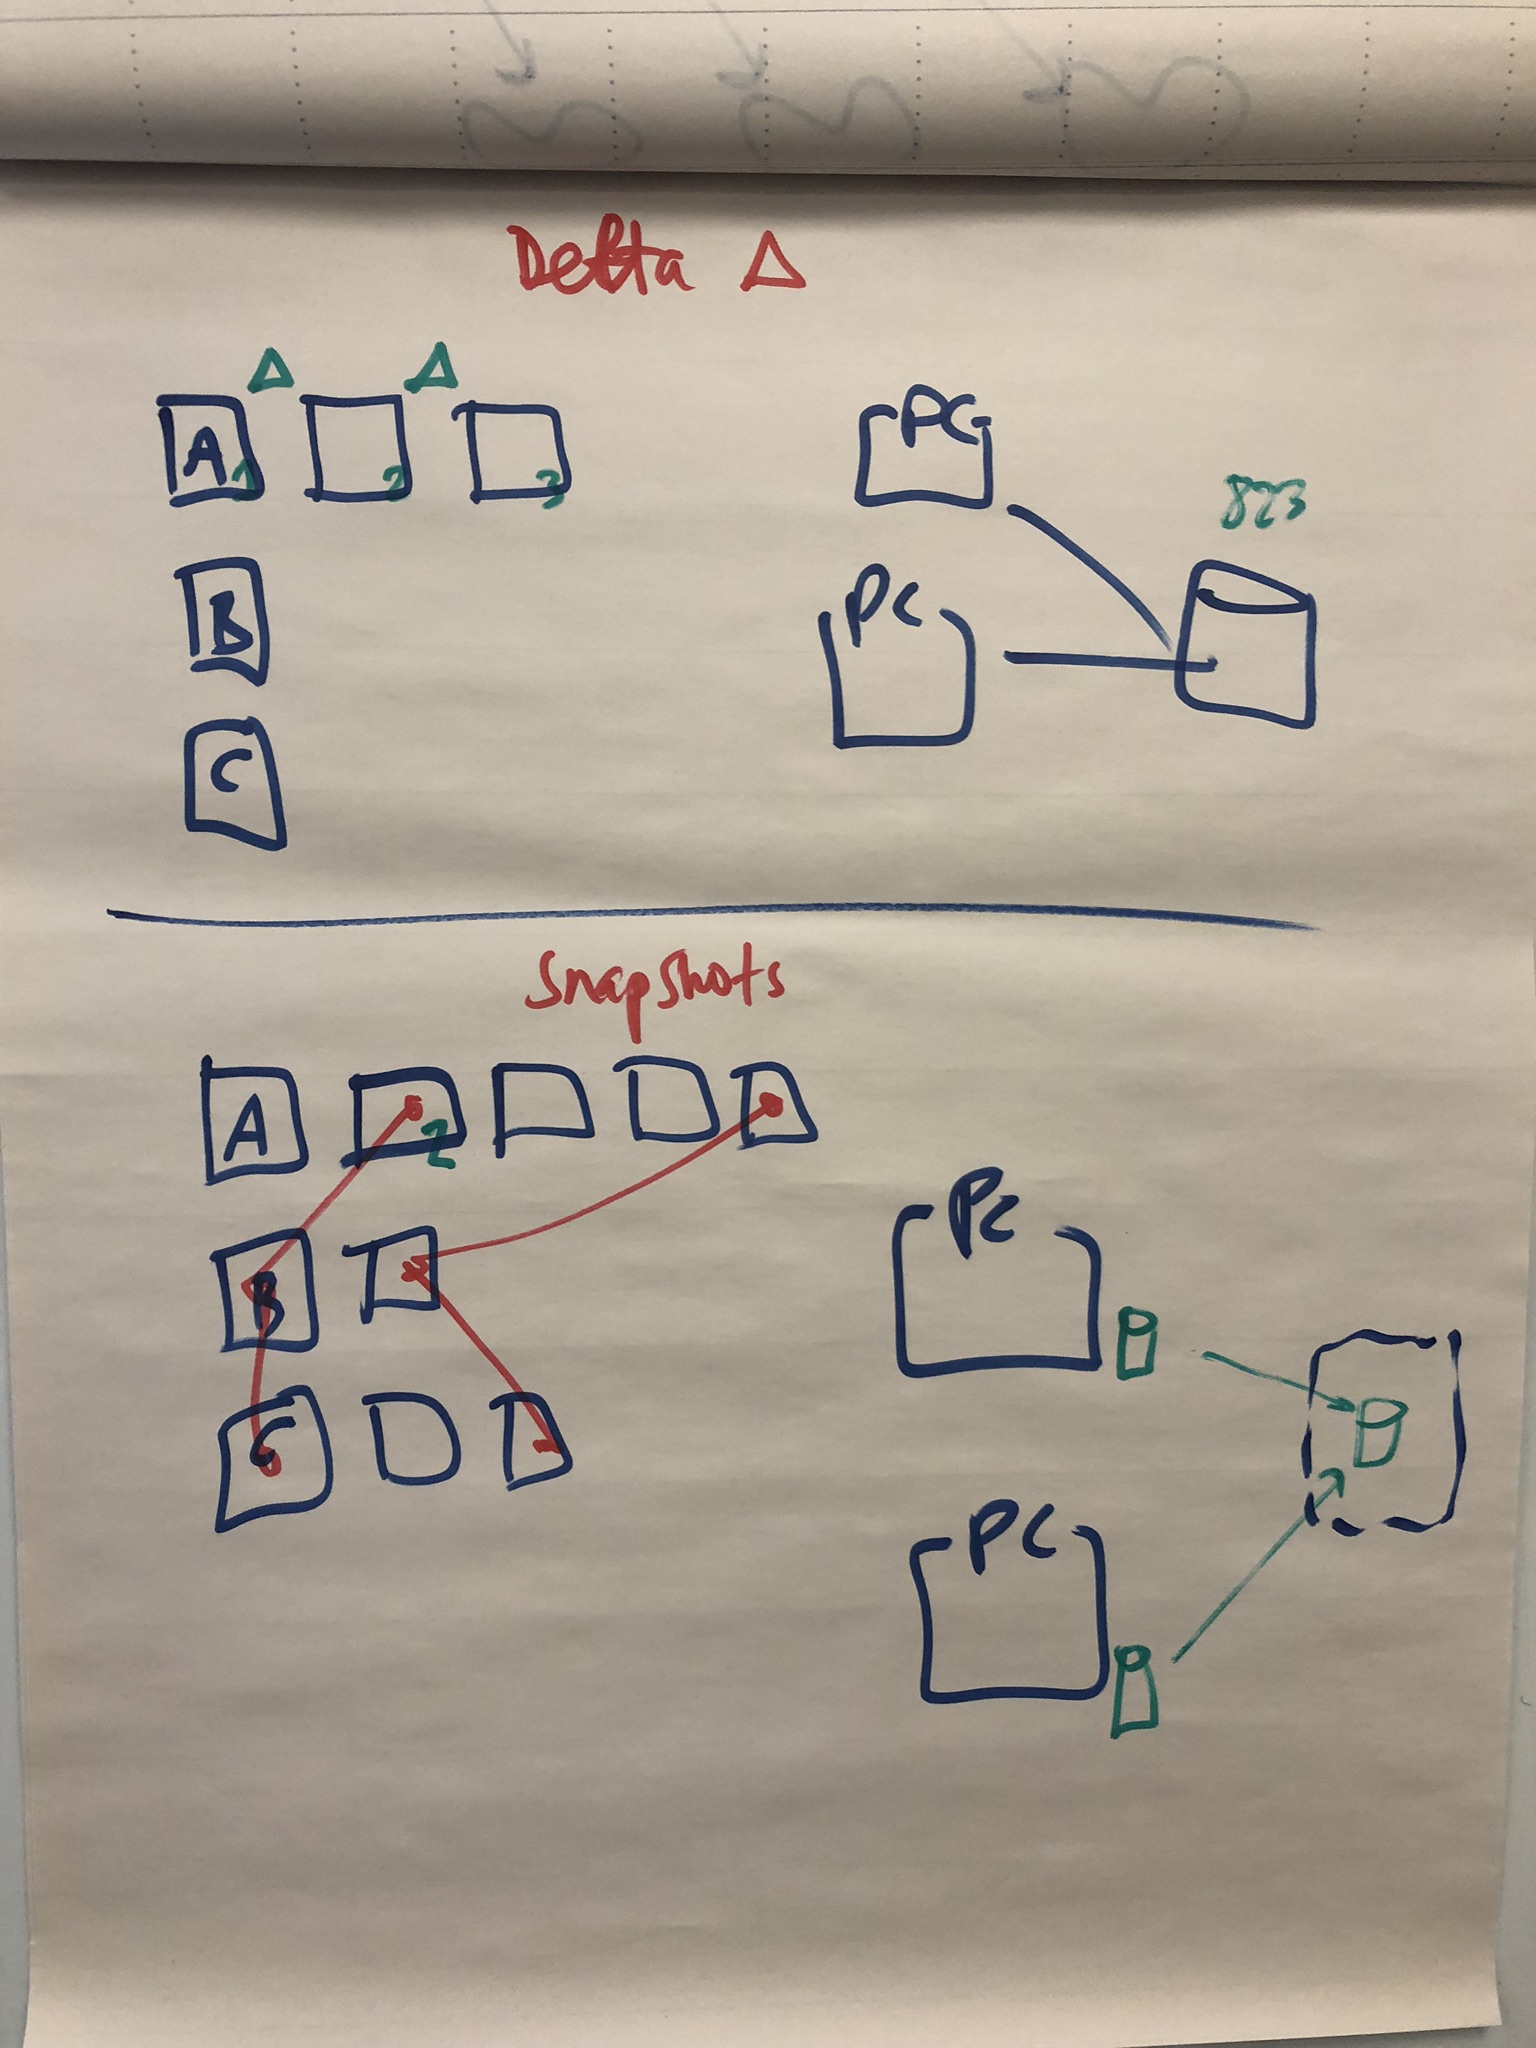 Delta Δ
Δ Δ
A 1 2 3
PC
823
B
PC
C
Snapshots
A 2
PC
B
C
PC